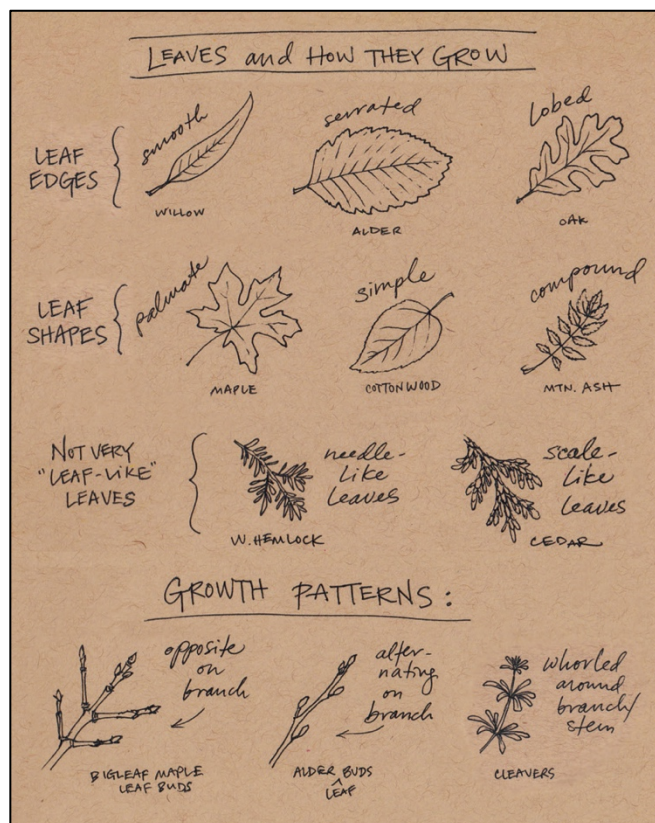 LEAVES and HOW THEY GROW
LEAF
EDGES
smooth
WILLOW
serrated
ALDER
lobed
OAK
LEAF
SHAPES
palmate
MAPLE
simple
COTTONWOOD
compound
MTN. ASH
NOT VERY
"LEAF-LIKE"
LEAVES
needle-
like
leaves
W. HEMLOCK
scale-
like
leaves
CEDAR
GROWTH PATTERNS:
opposite
on
branch
BIGLEAF MAPLE
LEAF BUDS
alter-
nating
on
branch
ALDER BUDS
^
LEAF
whorled
around
branch/
stem
CLEAVERS